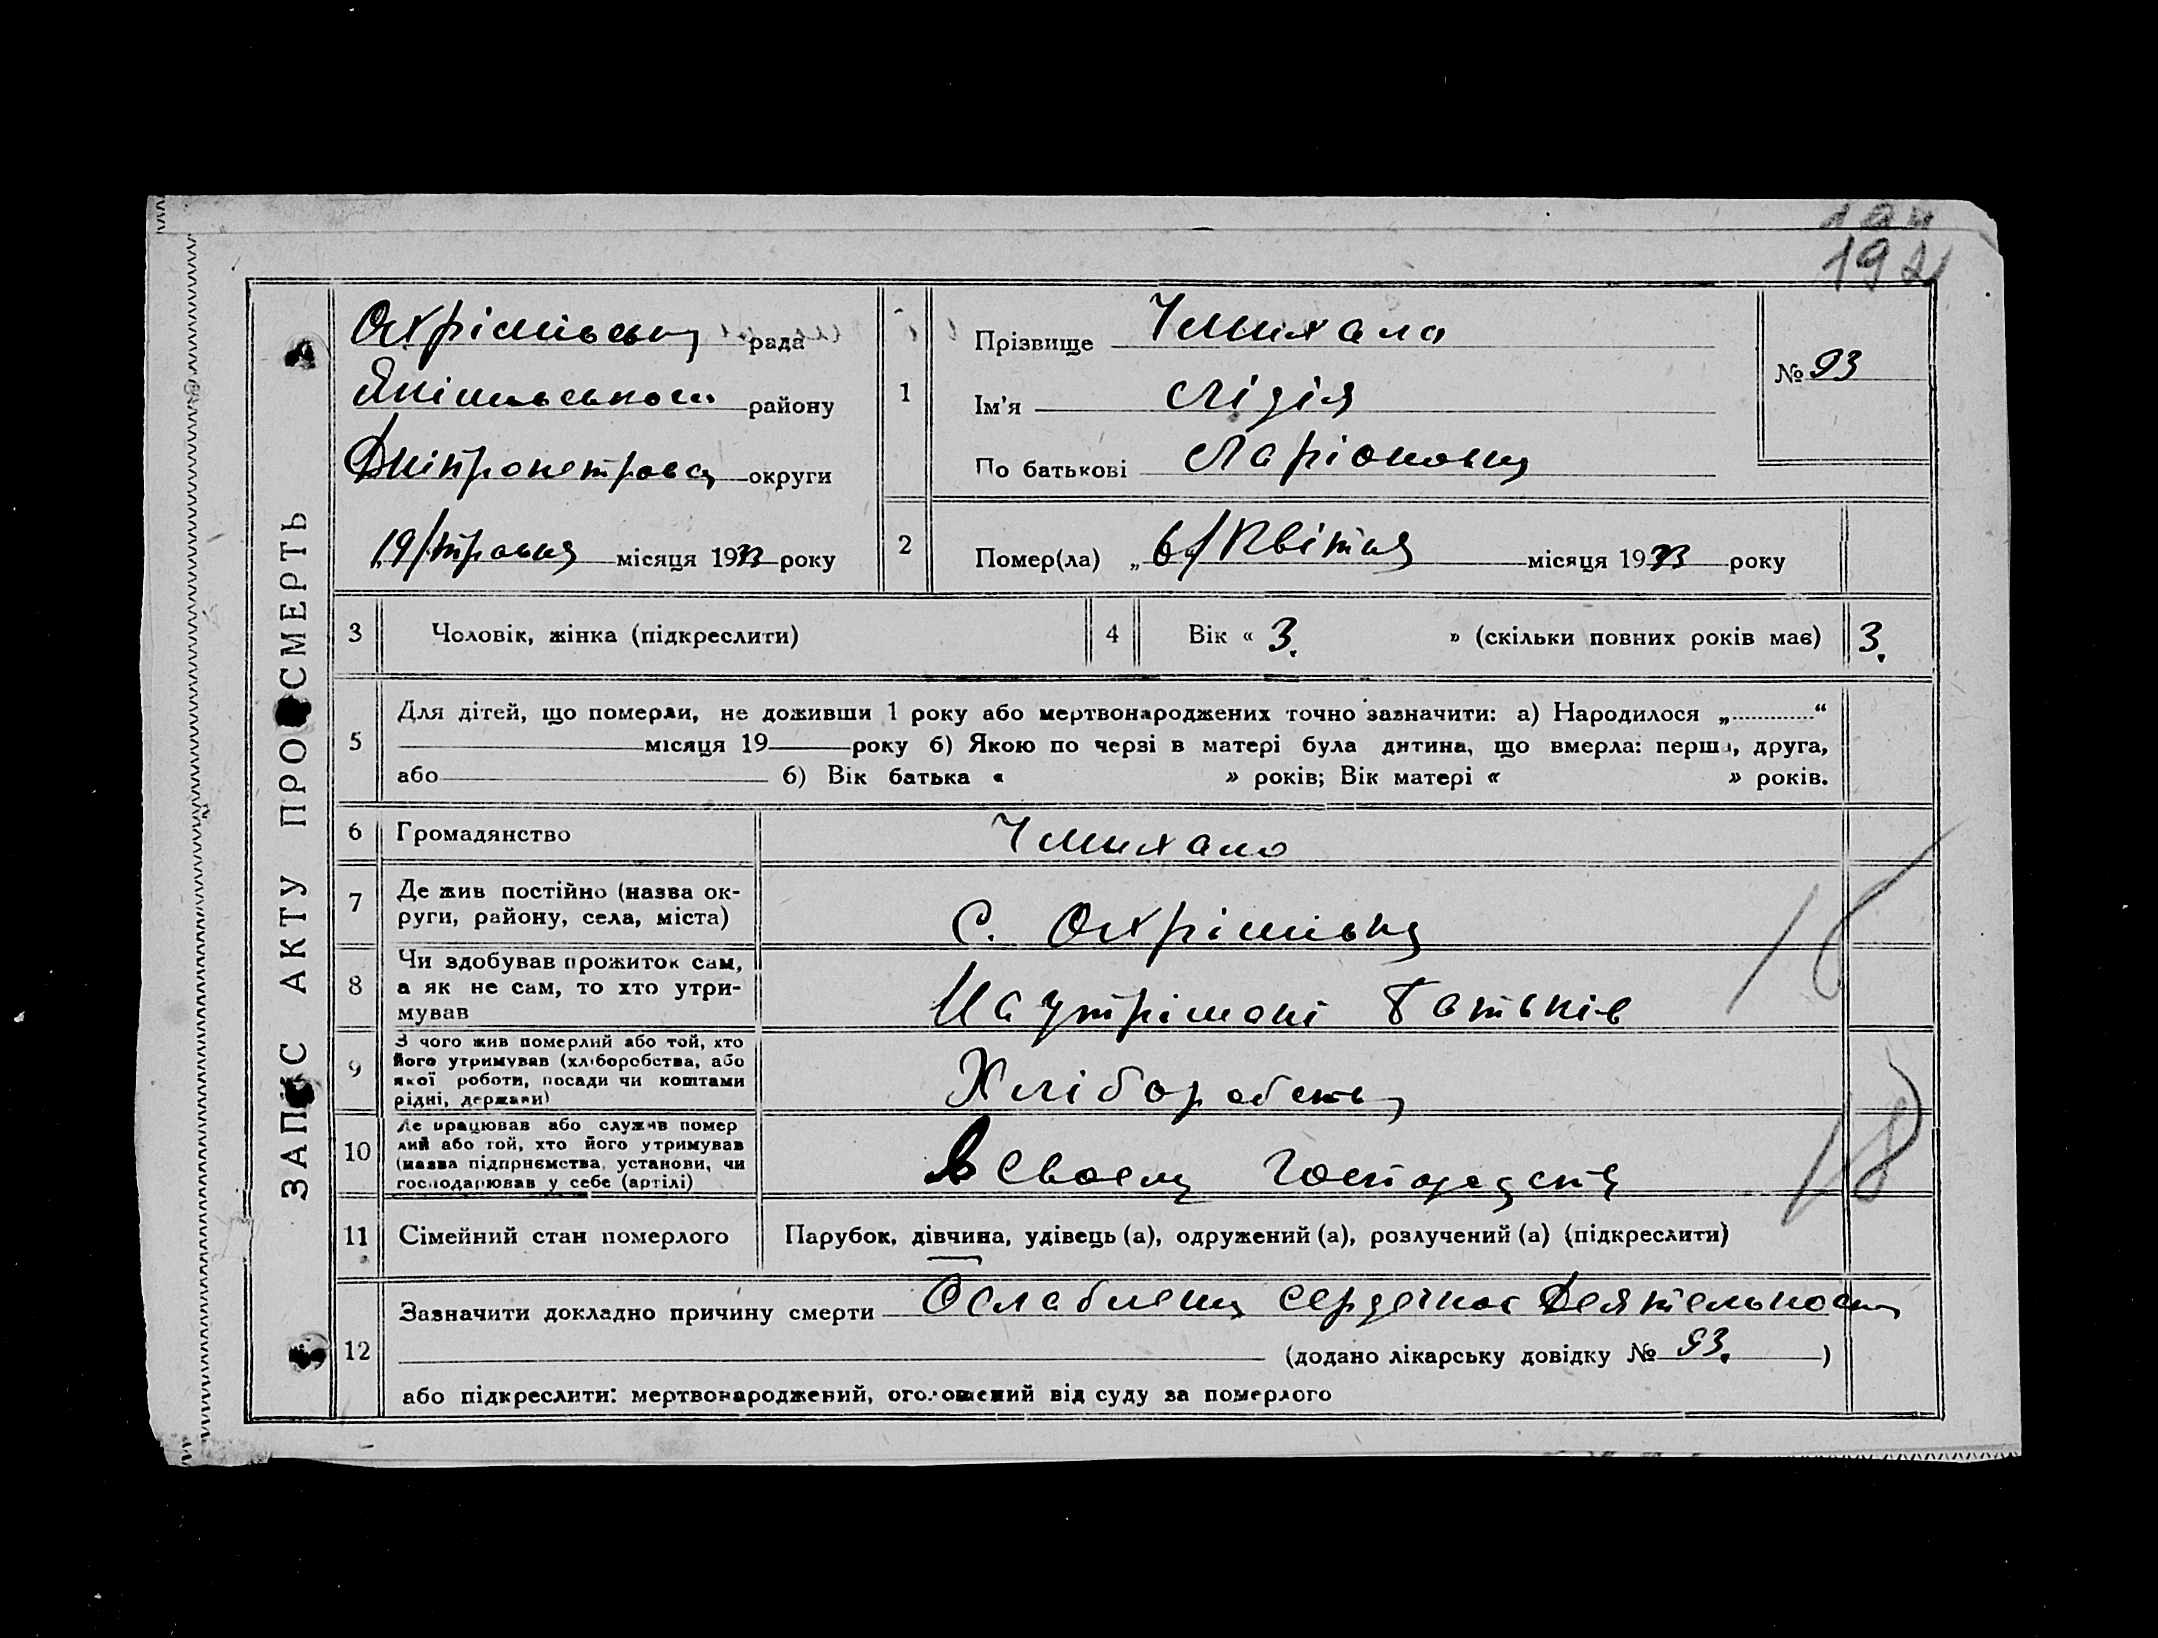 194
192
ЗАПИС АКТУ ПРО СМЕРТЬ
Охрімівська рада
Якімівського району
Дніпропетровс округи
„19/травня місяця 1933 року
1
Прізвище Чмихало
Ім'я Лідія
По батькові Ларіоновна
№ 93
2
Помер(ла) „ 6/Квітня місяця 1933 року
3 Чоловік, жінка (підкреслити)
4 Вік « 3. » (скільки повних років має) 3.
5
Для дітей, що померли, не доживши 1 року або мертвонароджених точно зазначити: а) Народилося „............“
місяця 19 року б) Якою по черзі в матері була дитина, що вмерла: перша, друга,
або б) Вік батька « » років; Вік матері « » років.
6 Громадянство Чмихало
7 Де жив постійно (назва ок-
руги, району, села, міста)
С. Охрімівка
8 Чи здобував прожиток сам,
а як не сам, то хто утри-
мував
На утрімані Батьків
9 З чого жив померлий або той, хто
його утримував (хліборобства, або
якої роботи, посади чи коштами
рідні, держави)
Хліборобств
10 Де працював або служив помер
лий або той, хто його утримував
(назва підприємства, установи, чи
господарював у себе (артілі)
В своему Господарству
16
18
11 Сімейний стан померлого Парубок, дівчина, удівець (а), одружений (а), розлучений (а) (підкреслити)
12
Зазначити докладно причину смерти Ослаблени сердечной Деятельности
(додано лікарську довідку № 93. )
або підкреслити: мертвонароджений, оголошений від суду за померлого